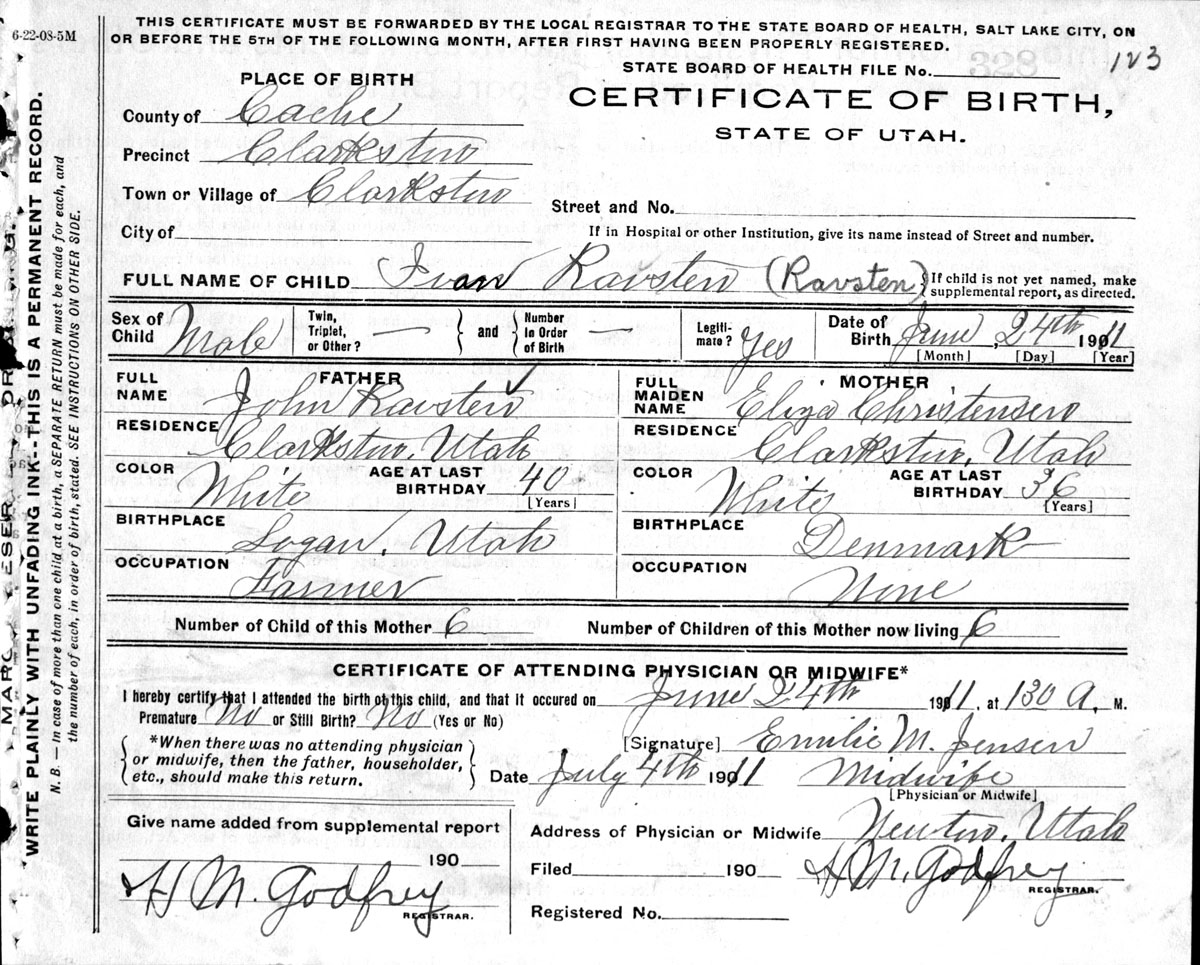 6-22-08-5M
THIS CERTIFICATE MUST BE FORWARDED BY THE LOCAL REGISTRAR TO THE STATE BOARD OF HEALTH, SALT LAKE CITY, ON
OR BEFORE THE 5TH OF THE FOLLOWING MONTH, AFTER FIRST HAVING BEEN PROPERLY REGISTERED.
STATE BOARD OF HEALTH FILE No. 328 123
PLACE OF BIRTH
CERTIFICATE OF BIRTH,
STATE OF UTAH.
County of Cache
Precinct Clarkston
Town or Village of Clarkston
Street and No.
City of
If in Hospital or other Institution, give its name instead of Street and number.
FULL NAME OF CHILD Ivan Ravsten (Ravsten)
If child is not yet named, make
supplemental report, as directed.
Sex of
Child Male
Twin,
Triplet,
or Other? —
and
Number
in Order
of Birth —
Legiti-
mate? Yes
Date of
Birth June 24th 1911
[Month] [Day] [Year]
FATHER
FULL
NAME John Ravsten
RESIDENCE Clarkston, Utah
COLOR White
AGE AT LAST
BIRTHDAY 40
[Years]
BIRTHPLACE Logan, Utah
OCCUPATION Farmer
MOTHER
FULL
MAIDEN
NAME Eliza Christensen
RESIDENCE Clarkston, Utah
COLOR White
AGE AT LAST
BIRTHDAY 36
[Years]
BIRTHPLACE Denmark
OCCUPATION None
Number of Child of this Mother 6 Number of Children of this Mother now living 6
CERTIFICATE OF ATTENDING PHYSICIAN OR MIDWIFE*
I hereby certify that I attended the birth of this child, and that it occured on June 24th 1911, at 130 A. M.
Premature No or Still Birth? No (Yes or No)
*When there was no attending physician
or midwife, then the father, householder,
etc., should make this return.
[Signature] Emilie M. Jensen
Date July 4th 1911 Midwife
[Physician or Midwife]
Give name added from supplemental report
190
H M. Godfrey
REGISTRAR.
Address of Physician or Midwife Newton, Utah
Filed 190 H M. Godfrey
REGISTRAR.
Registered No.
WRITE PLAINLY WITH UNFADING INK--THIS IS A PERMANENT RECORD.
N. B. — In case of more than one child at a birth, a SEPARATE RETURN must be made for each, and
the number of each, in order of birth, stated. SEE INSTRUCTIONS ON OTHER SIDE.